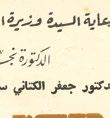 رعاية السيدة وزيرة ا
الدكتورة نجـ
دكتور جعفر الكتاني سـ